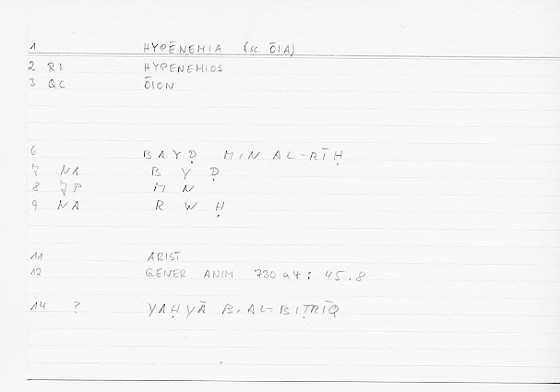 1 HYPĒNEMIA (sc. ŌIA)
2 RI HYPENEMIOS
3 QC ŌION
6 BAYḌ MIN AL-RĪḤ
7 NA B Y Ḍ
8 JP M N
9 NA R W Ḥ
11 ARIST
12 GENER ANIM 730 a4 : 45.8
14 ? YAḤYĀ B. AL-BIṬRĪQ